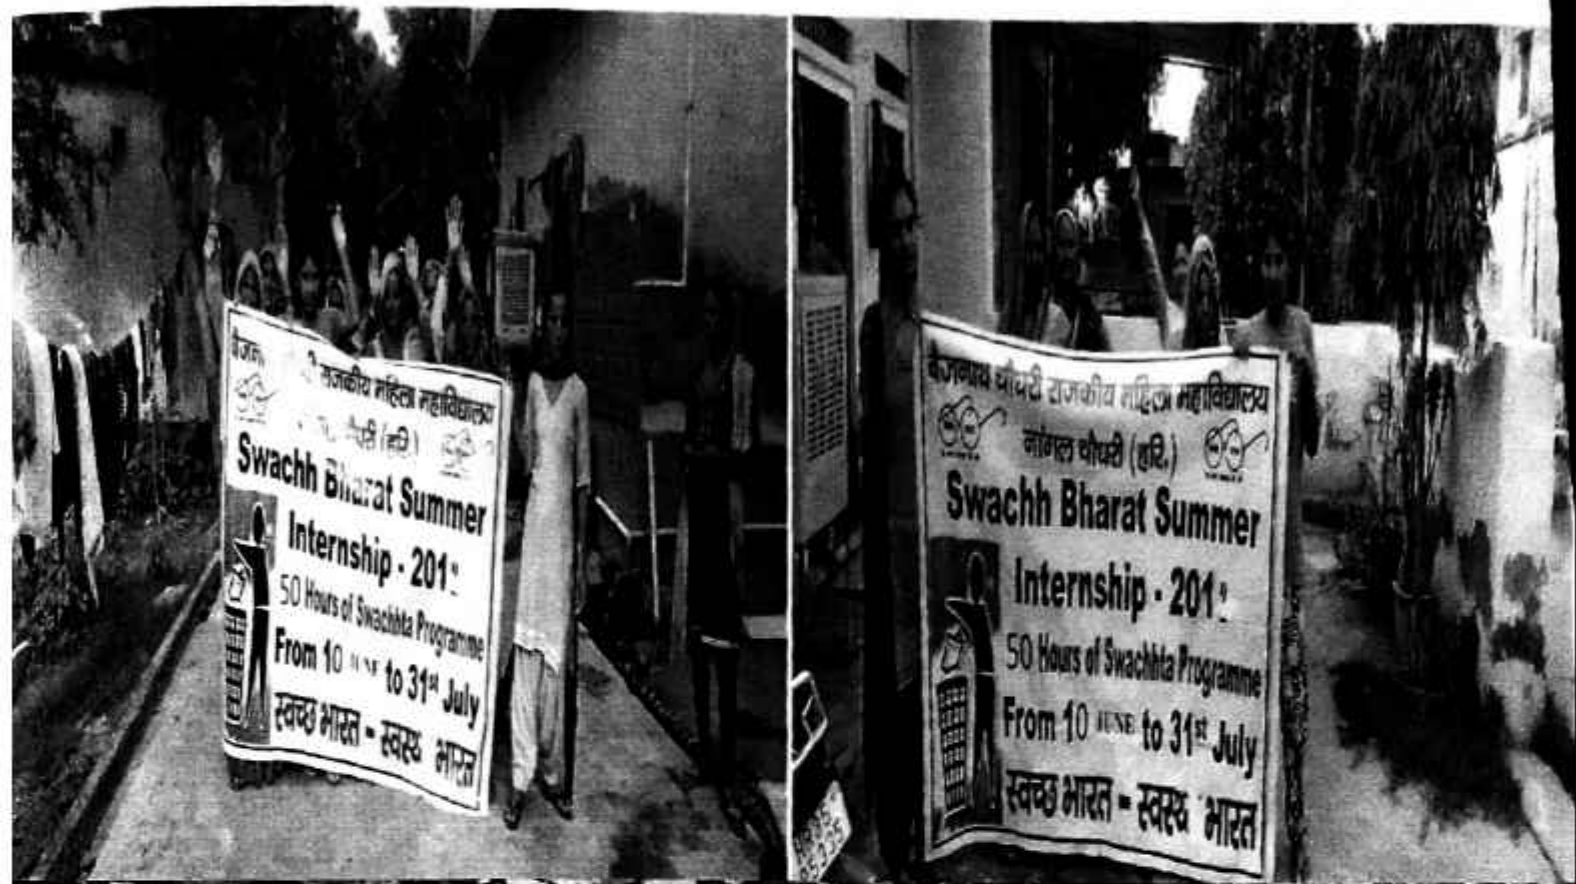 राजकीय महिला महाविद्यालय
चौधरी (हरि.)
Swachh Bharat Summer
Internship - 201
50 Hours of Swachhta Programme
From 10 JUNE to 31st July
स्वच्छ भारत = स्वस्थ भारत
बेजनाथ चौधरी राजकीय महिला महाविद्यालय
नांगल चौधरी (हरि.)
Swachh Bharat Summer
Internship - 201
50 Hours of Swachhta Programme
From 10 JUNE to 31st July
स्वच्छ भारत = स्वस्थ भारत